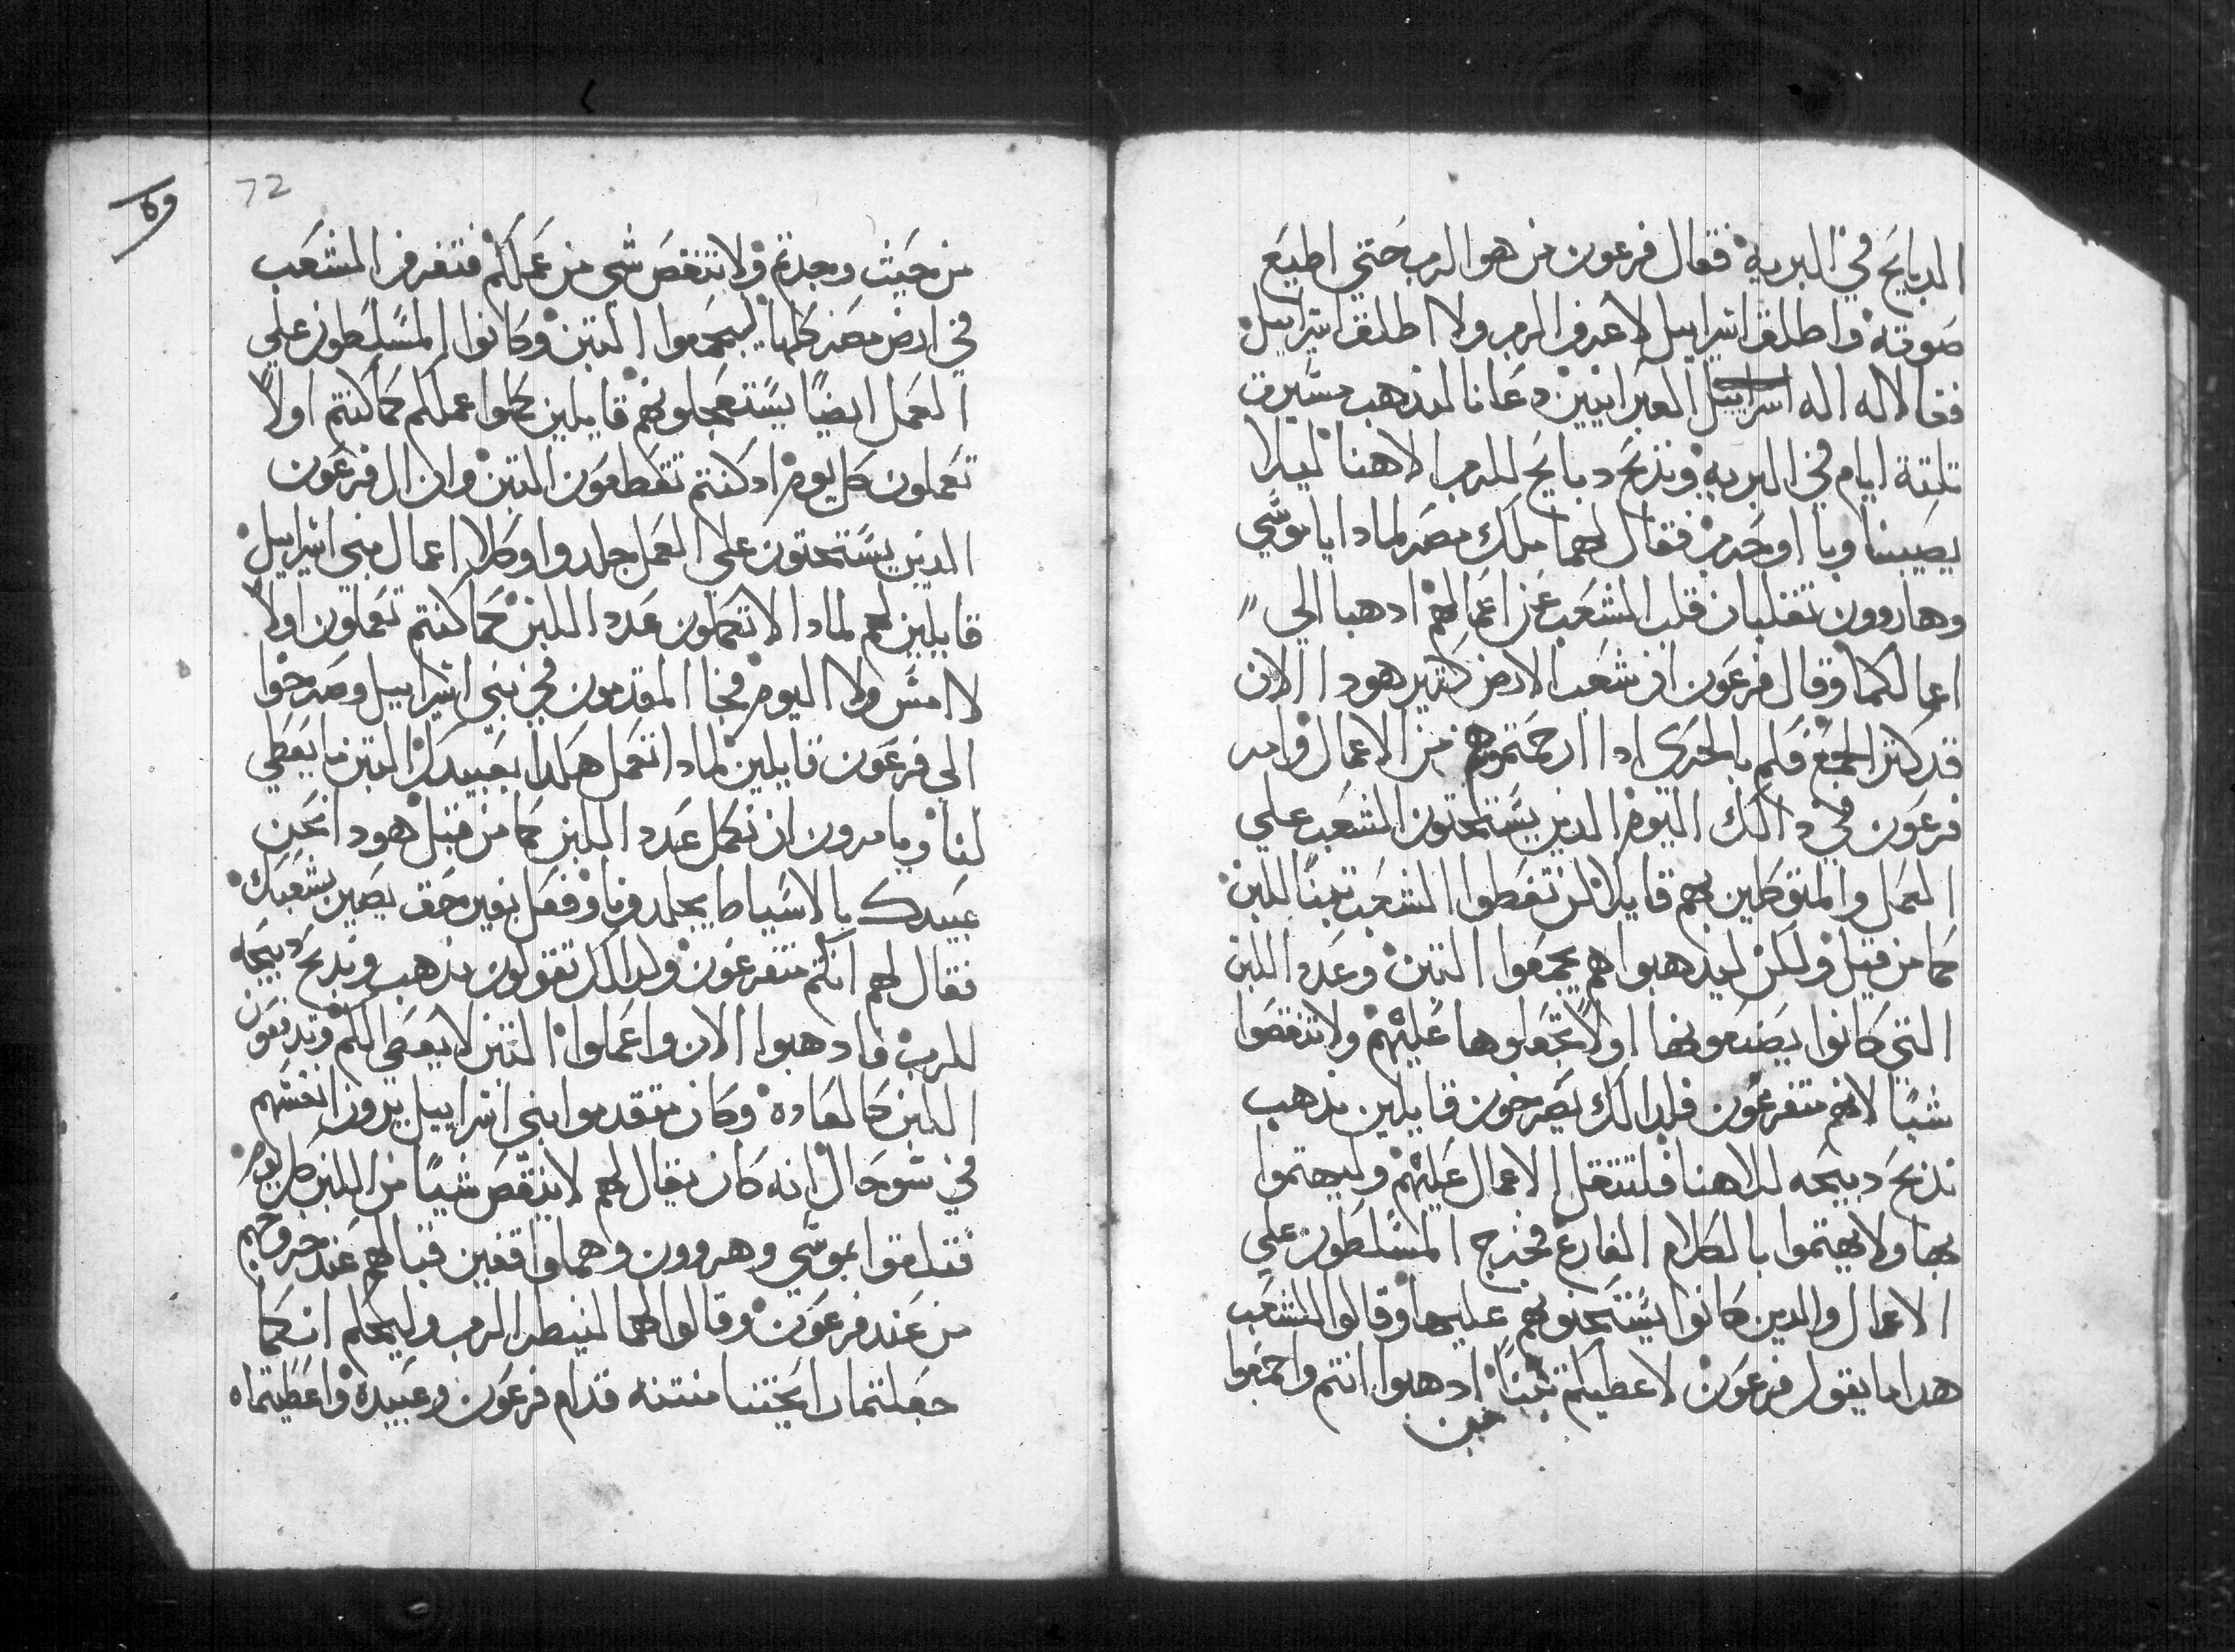 الدبايح في البريه فقال فرعون من هو الرب حتي اطيع
صوته واطلق اسراييل لا اعرف الرب ولا اطلق اسراييل
فقالا له اله اسراييل العبرانيين دعانا لنذهب مسيرة
تلتة ايام في البريه ونذبح دبايح للرب الاهنا ليلا
يصيبنا وبا او حرب فقال لهما ملك مصر لمادا يا موسي
وهاروون تقلبان قلب الشعب عن اعمالهم ادهبا الي
اعمالكما وقال فرعون ان شعب الارض كتير هودا الان
قد كتر الجمع فكم بالحري ادا ارحمتموهم من الاعمال وامر
فرعون في دالك اليوم الدين يستحتون الشعب علي
العمل والمتوكلين بهم قايلا لن تعطوا الشعب تبنا للبن
كما من قبل ولكن ليدهبوا هم يجمعوا التبن وعدد اللبن
التي كانوا يصنعونها اولا تجعلوها عليهم ولا تنقصوا
شيا لانهم متفرعون فلدالك يصرخون قايلين ندهب
ندبح دبيحه لالاهنا فلتتقل الاعمال عليهم وليهتموا
بها ولا يهتموا بالكلام الفارغ فخرج المسلطون علي
الاعمال والدين كانوا يستحتونهم عليها وقالوا للشعب
هدا ما يقول فرعون لا اعطيكم تبنا ادهبوا انتم واجمعوا
من
72
من حيت وجدتم ولا ينتقص شي من عملكم فتفرق الشعب
في ارض مصر كلها ليجمعوا التبن وكانوا المسلطون علي
العمل ايضا يستعجلونهم قايلين كملوا عملكم كما كنتم اولا
تعملون كل يوم اد كنتم تعطون التبن وان ال فرعون
الدين يستحتون علي العمل جلدوا وكلا اعمال بني اسراييل
قايلين لهم لمادا لا تكملون عدد اللبن كما كنتم تعملون اولا
لا امس ولا اليوم فجا المقدمون في بني اسراييل وصرخوا
الي فرعون قايلين لمادا تعمل هكدا بعبيدك التبن ما يعطي
لنا ويامرون ان نكمل عدد اللبن كما من قبل هودا نحن
عبيدك بالاسياط يجلدونا وفعل بغير حق يصير بشعبك
فقال لهم انكم متفرعون ولدالك تقولون ندهب وندبح دبيحه
للرب فادهبوا الان واعملوا التبن لا يعطي لكم وتدفعون
اللبن كالعاده وكان متقدموا بني اسراييل يرون انفسهم
في سو حال انه كان يقال لهم لا ينقص شيا من اللبن كل يوم
فتلاقوا بموسي وهروون وهما واقفين قبالهم عند خروجهم
من عند فرعون وقالوا لهما لينظر الرب وليحكم انكما
جعلتما رايحتنا منتنه قدام فرعون وعبيده واعطيتماه